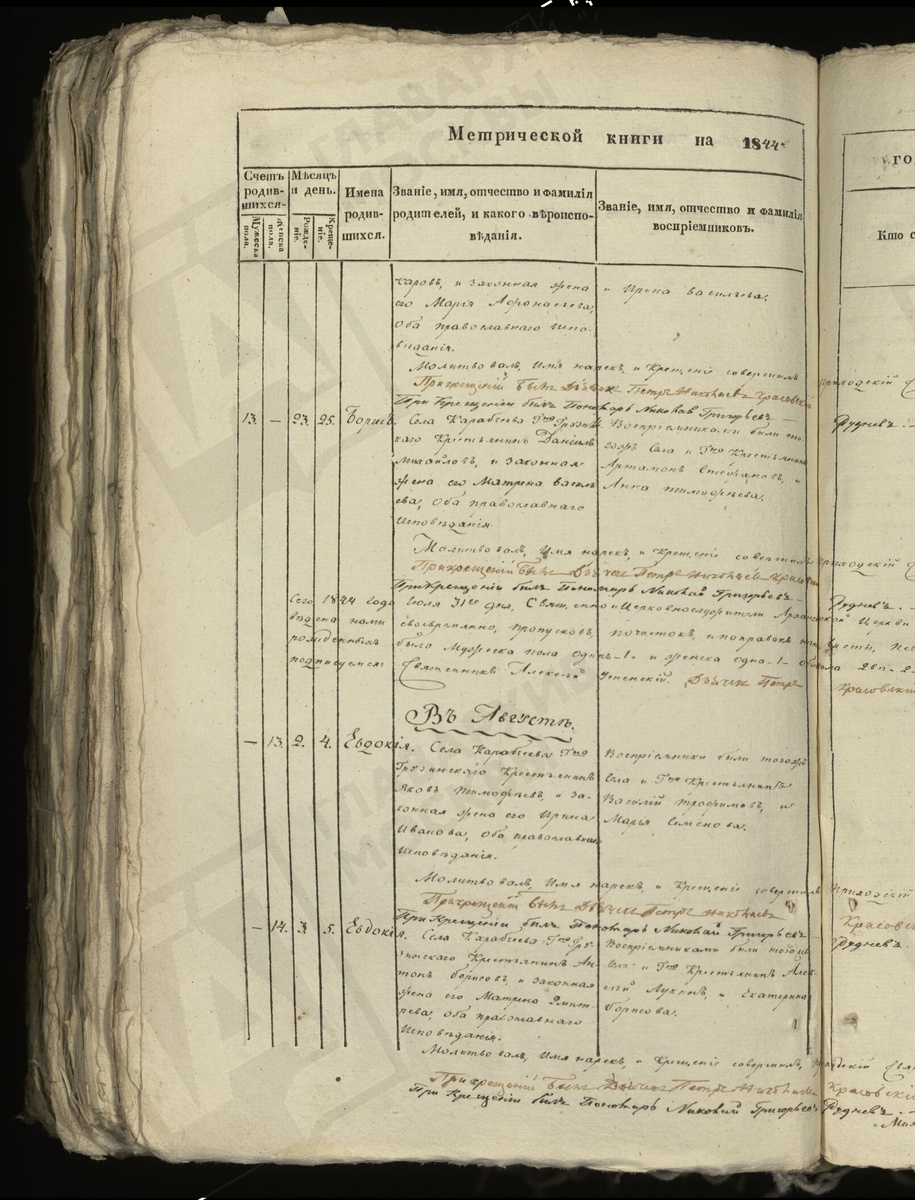 Метрической книги на 1844
Счетъ родив-шихся.
Мужеска пола.
Женска пола.
Мѣсяцъ и день.
Рожде-ніе.
Креще-ніе.
Имена родив-шихся.
Званіе, имя, отчество и фамилія родителей, и какого вѣроиспо-вѣданія.
Званіе, имя, отчество и фамилія воспріемниковъ.
го
Кто с
харовъ, и законная жена
его Марія Афонасьева,
оба православнаго испо-
вѣданія.
и Ирина Васильева.
Молитвовалъ, Имя нарекъ, и Крещеніе совершилъ приходскій
При крещеніи былъ Дьячекъ Петръ Никитьевъ Красовскій
При Крещеніи былъ Пономарь Николай Григорьевъ Рудневъ.
13. — 23. 25. Борисъ.
Села Карабеева Гна Грузин-
скаго Крестьянинъ Даніилъ
Михайловъ, и законная
жена его Матрена Василь-
ева, оба православнаго
исповѣданія
Воспріемниками были то-
гожъ села и Гна Крестьянинъ
Артамонъ Степановъ, и
Анна Тимофѣева.
Молитвовалъ, Имя нарекъ, и Крещеніе совершилъ приходскій
При крещеніи былъ Дьячекъ Петръ Никитьевъ
При Крещеніи былъ Пономарь Николай Григорьевъ Рудневъ.
Сего 1844 года Іюля 31го дня, Священно и Церковнослужители Церкви
своевремянно, пропусковъ, почистокъ, и поправокъ
было Мужеска пола одинъ -1- и женска одна -1- 2
подписуемся: Священникъ Алексій Успенскій. Дьячекъ Петръ Красовскій
Въ Августѣ.
— 13. 2. 4. Евдокія.
Села Карабеева Гна
Грузинскаго Крестьянинъ
Яковъ Тимофѣевъ, и за-
конная жена его Ирина
Иванова, оба православнаго
исповѣданія.
Воспріемники были тогожъ
села и Гна Крестьянинъ
Василій Трофимовъ, и
Марья Семенова.
Молитвовалъ, Имя нарекъ, и Крещеніе совершилъ приходскій
При крещеніи былъ Дьячекъ Петръ Никитьевъ Красовск
При Крещеніи былъ Пономарь Николай Григорьевъ Рудневъ.
— 14. 3. 5. Евдокія.
Села Карабеева Гна Гру-
зинскаго Крестьянинъ Ан-
тонъ Борисовъ, и законная
жена его Матрена Дмит-
рева, оба православнаго
исповѣданія.
Воспріемниками были тогожъ
села и Гна Крестьянинъ Алек-
сѣй Лукинъ, и Екатерина
Борисова.
Молитвовалъ, Имя нарекъ, и Крещеніе совершилъ,
При крещеніи былъ Дьячекъ Петръ Никитьевъ Красовскі
При Крещеніи былъ Пономарь Николай Григорьевъ Рудневъ.